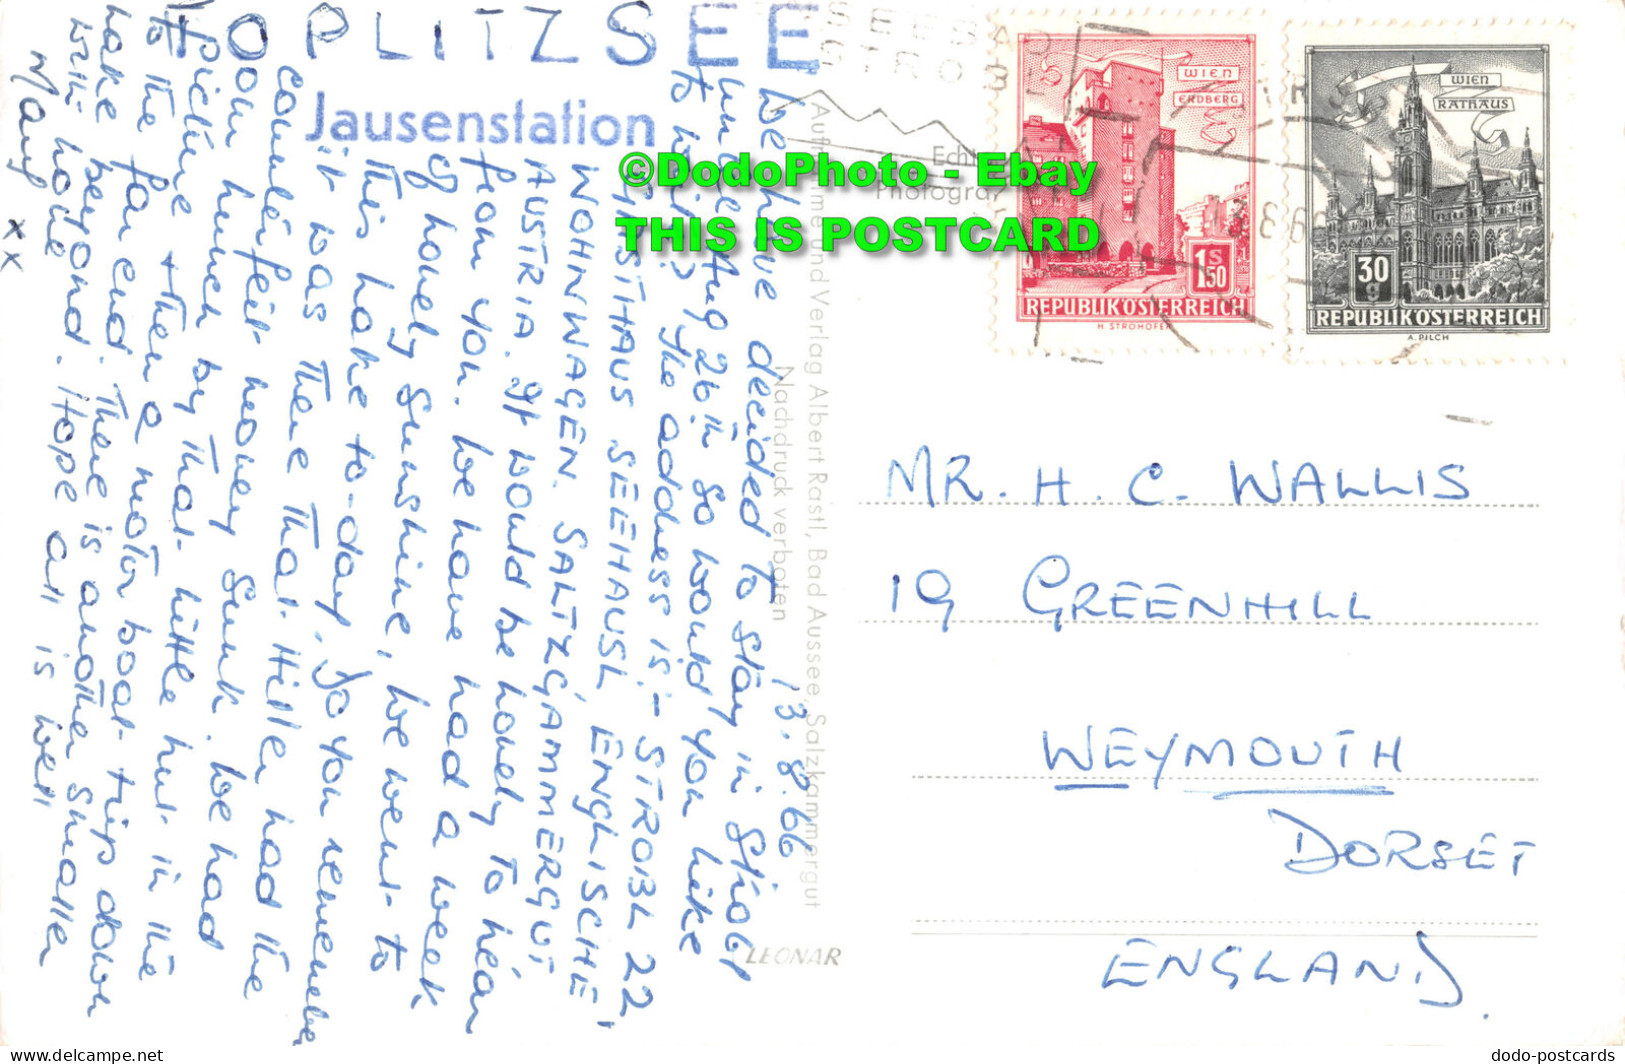 TOPLITZSEE
Jausenstation
13.8.66
We have decided to stay in Strobl
until Aug 26th so would you like
to write? The address is:- STROBL 22,
GASTHAUS SEEHAUSL ENGLISCHE
WOHNWAGEN. SALTZGAMMERGUT
AUSTRIA. It would be lovely to hear
from you. We have had a week
of lovely sunshine, we went to
this lake to-day, Do you remember
it was there that Hitler had the
counterfeit money sunk. We had
our lunch by that little hut in the
picture & then a motor boat trip down
to the far end. There is another smaller
lake beyond. Hope all is well
with home
Mary xx
Aufnahme und Verlag Albert Rastl, Bad Aussee, Salzkammergut
Nachdruck verboten
LEONAR
©DodoPhoto - Ebay
THIS IS POSTCARD
WIEN
ERDBERG
1 S 50
REPUBLIK ÖSTERREICH
H. STROHOFER
WIEN
RATHAUS
30
g
REPUBLIK ÖSTERREICH
A. PILCH
MR. H. C. WALLIS
19 GREENHILL
WEYMOUTH
DORSET
ENGLAND.
dodo-postcards